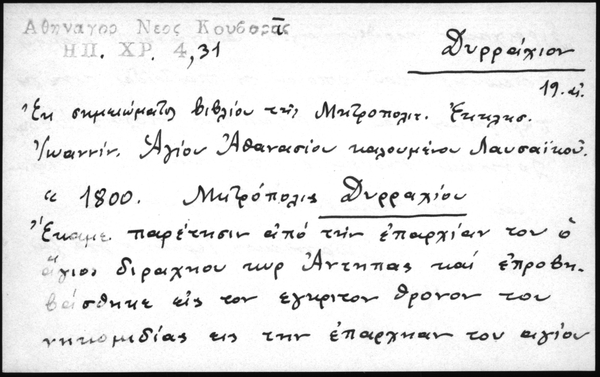 Αθηναγορ Νεος Κουβαρᾶς
ΗΠ. ΧΡ. 4,31
Δυρράχιον
19. αἰ.
Ἐκ σημειώματος βιβλίου τῆς Μητροπολιτ. Ἐκκλησ.
Ἰωαννίν. Ἁγίου Ἀθανασίου καλουμένου Λαυσαϊκοῦ.
« 1800. Μητρόπολις Δυρραχίου
Ἔκαμε παρέτησιν ἀπό τήν ἐπαρχίαν του ὁ
ἅγιος διραχηου κυρ Ἄντηπας καί ἐπροβη-
βάσθηκε εἰς τον εγκριτον θρονον του
νηκομιδίας εις την ἐπαρχηαν του αγίου